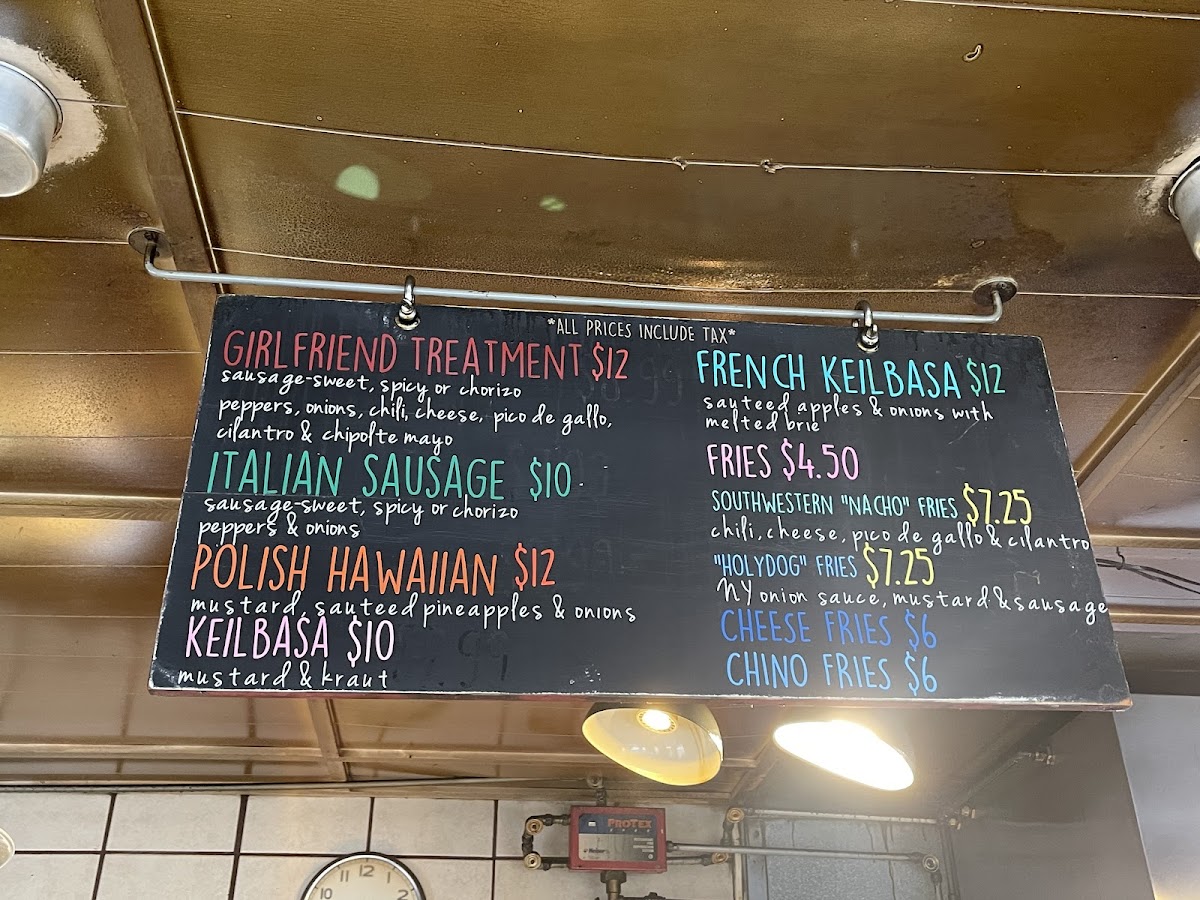 *ALL PRICES INCLUDE TAX*
GIRLFRIEND TREATMENT $12
sausage-sweet, spicy or chorizo
peppers, onions, chili, cheese, pico de gallo,
cilantro & chipolte mayo
ITALIAN SAUSAGE $10
sausage-sweet, spicy or chorizo
peppers & onions
POLISH HAWAIIAN $12
mustard, sauteed pineapples & onions
KEILBASA $10
mustard & kraut
FRENCH KEILBASA $12
sauteed apples & onions with
melted brie
FRIES $4.50
SOUTHWESTERN "NACHO" FRIES $7.25
chili, cheese, pico de gallo & cilantro
"HOLYDOG" FRIES $7.25
NY onion sauce, mustard & sausage
CHEESE FRIES $6
CHINO FRIES $6
PROTEX
11 12 1
10 2